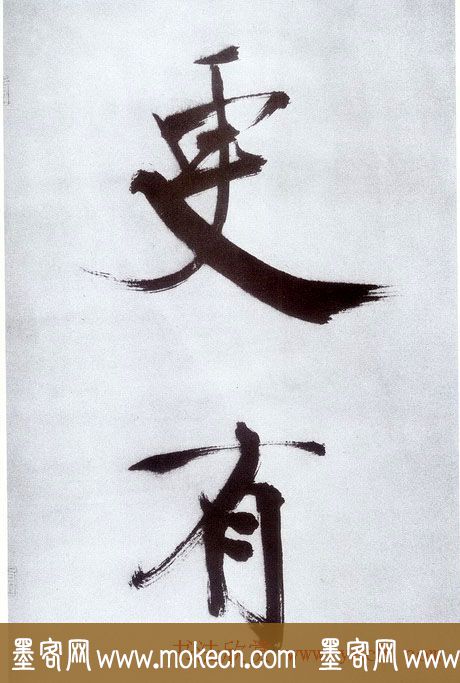 更
有
墨客网 www.mokecn.com 墨客网 www.mokecn.com